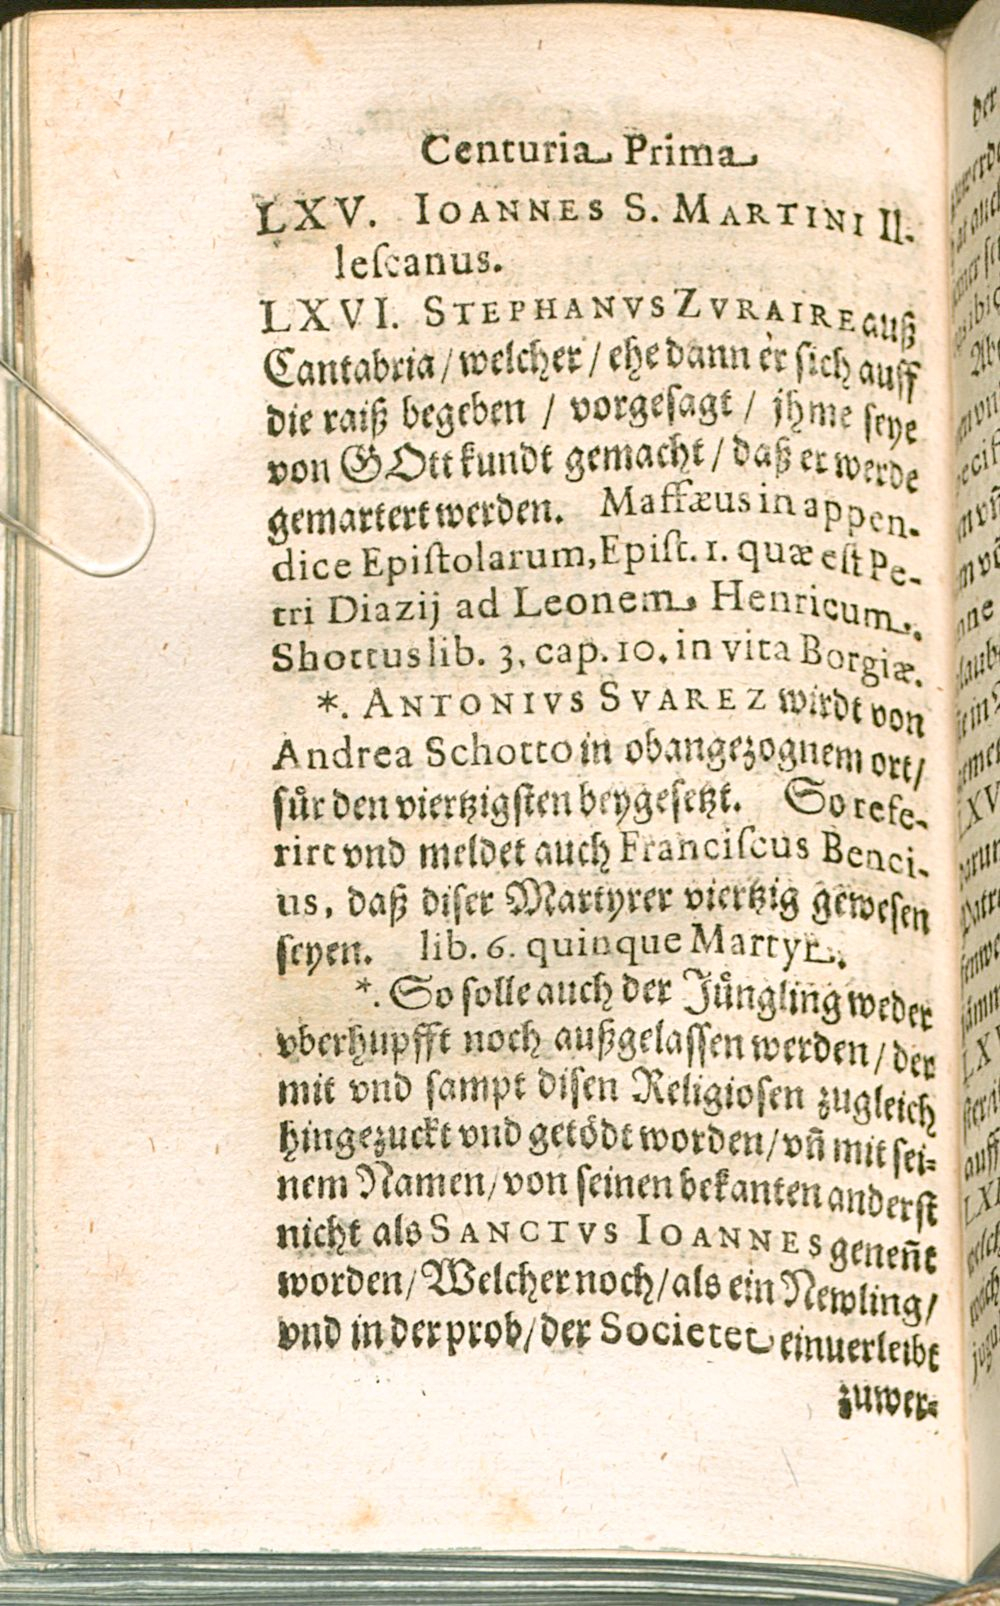 Centuria Prima
LXV. IOANNES S. MARTINI Il-
lescanus.
LXVI. STEPHANVS ZVRAIRE auß
Cantabria / welcher / ehe dann er sich auff
die raiß begeben / vorgesagt / jhme seye
von GOtt kundt gemacht / daß er werde
gemartert werden. Maffæus in appen-
dice Epistolarum, Epist. 1. quæ est Pe-
tri Diazij ad Leonem Henricum.
Shottus lib. 3. cap. 10. in vita Borgiæ.
*. ANTONIVS SVAREZ wirdt von
Andrea Schotto in obangezognem ort /
für den viertzigsten beygesetzt. So refe-
rirt vnd meldet auch Franciscus Benci-
us, daß diser Martyrer viertzig gewesen
seyen. lib. 6. quinque Martyr.
*. So solle auch der Jüngling weder
vberhupfft noch außgelassen werden / der
mit vnd sampt disen Religiosen zugleich
hingezuckt vnd getödt worden / vñ mit sei-
nem Namen / von seinen bekanten anderst
nicht als SANCTVS IOANNES geneñt
worden / Welcher noch / als ein Newling /
vnd in der prob / der Societet einuerleibt
zuwer-